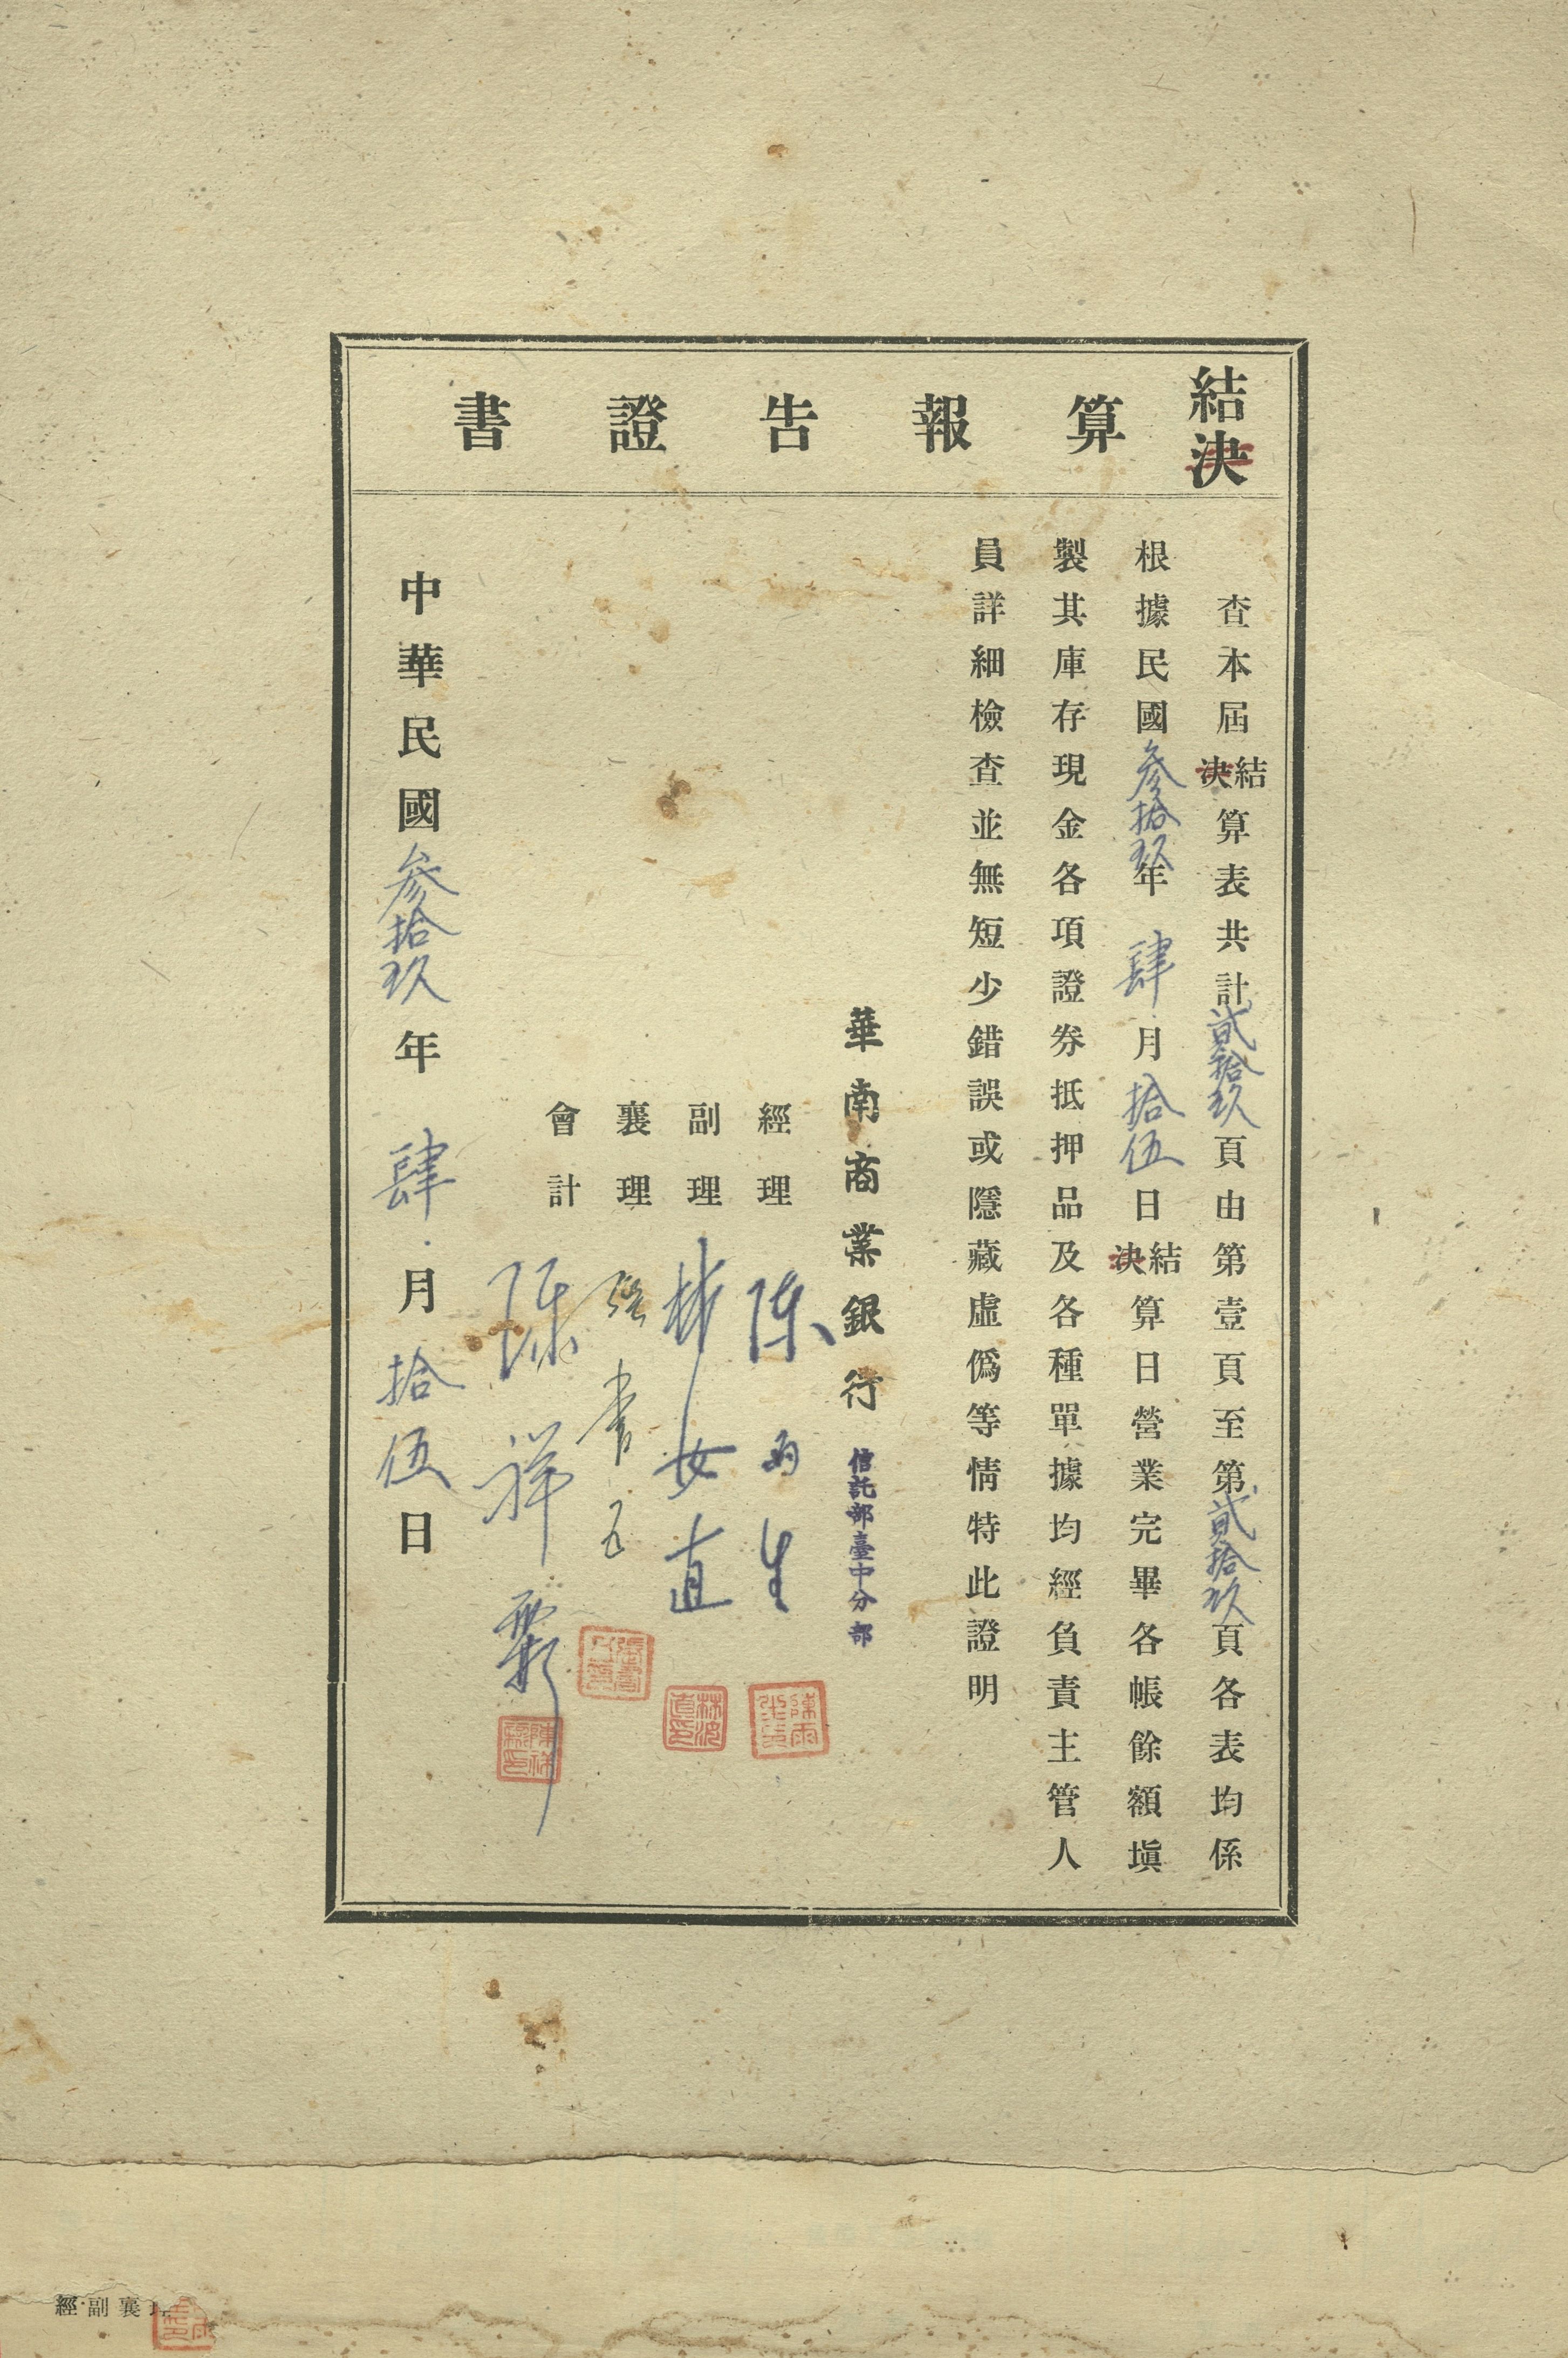 結決算報告證書
查本屆結決算表共計貳拾玖頁由第壹頁至第貳拾玖頁各表均係
根據民國參拾玖年肆月拾伍日結決算日營業完畢各帳餘額塡
製其庫存現金各項證券抵押品及各種單據均經負責主管人
員詳細檢查並無短少錯誤或隱藏虛僞等情特此證明
華南商業銀行信託部臺中分部
經理 陳雨生
副理 林 直
襄理 張書
會計 陳祥
中華民國參拾玖年肆月拾伍日
經副襄